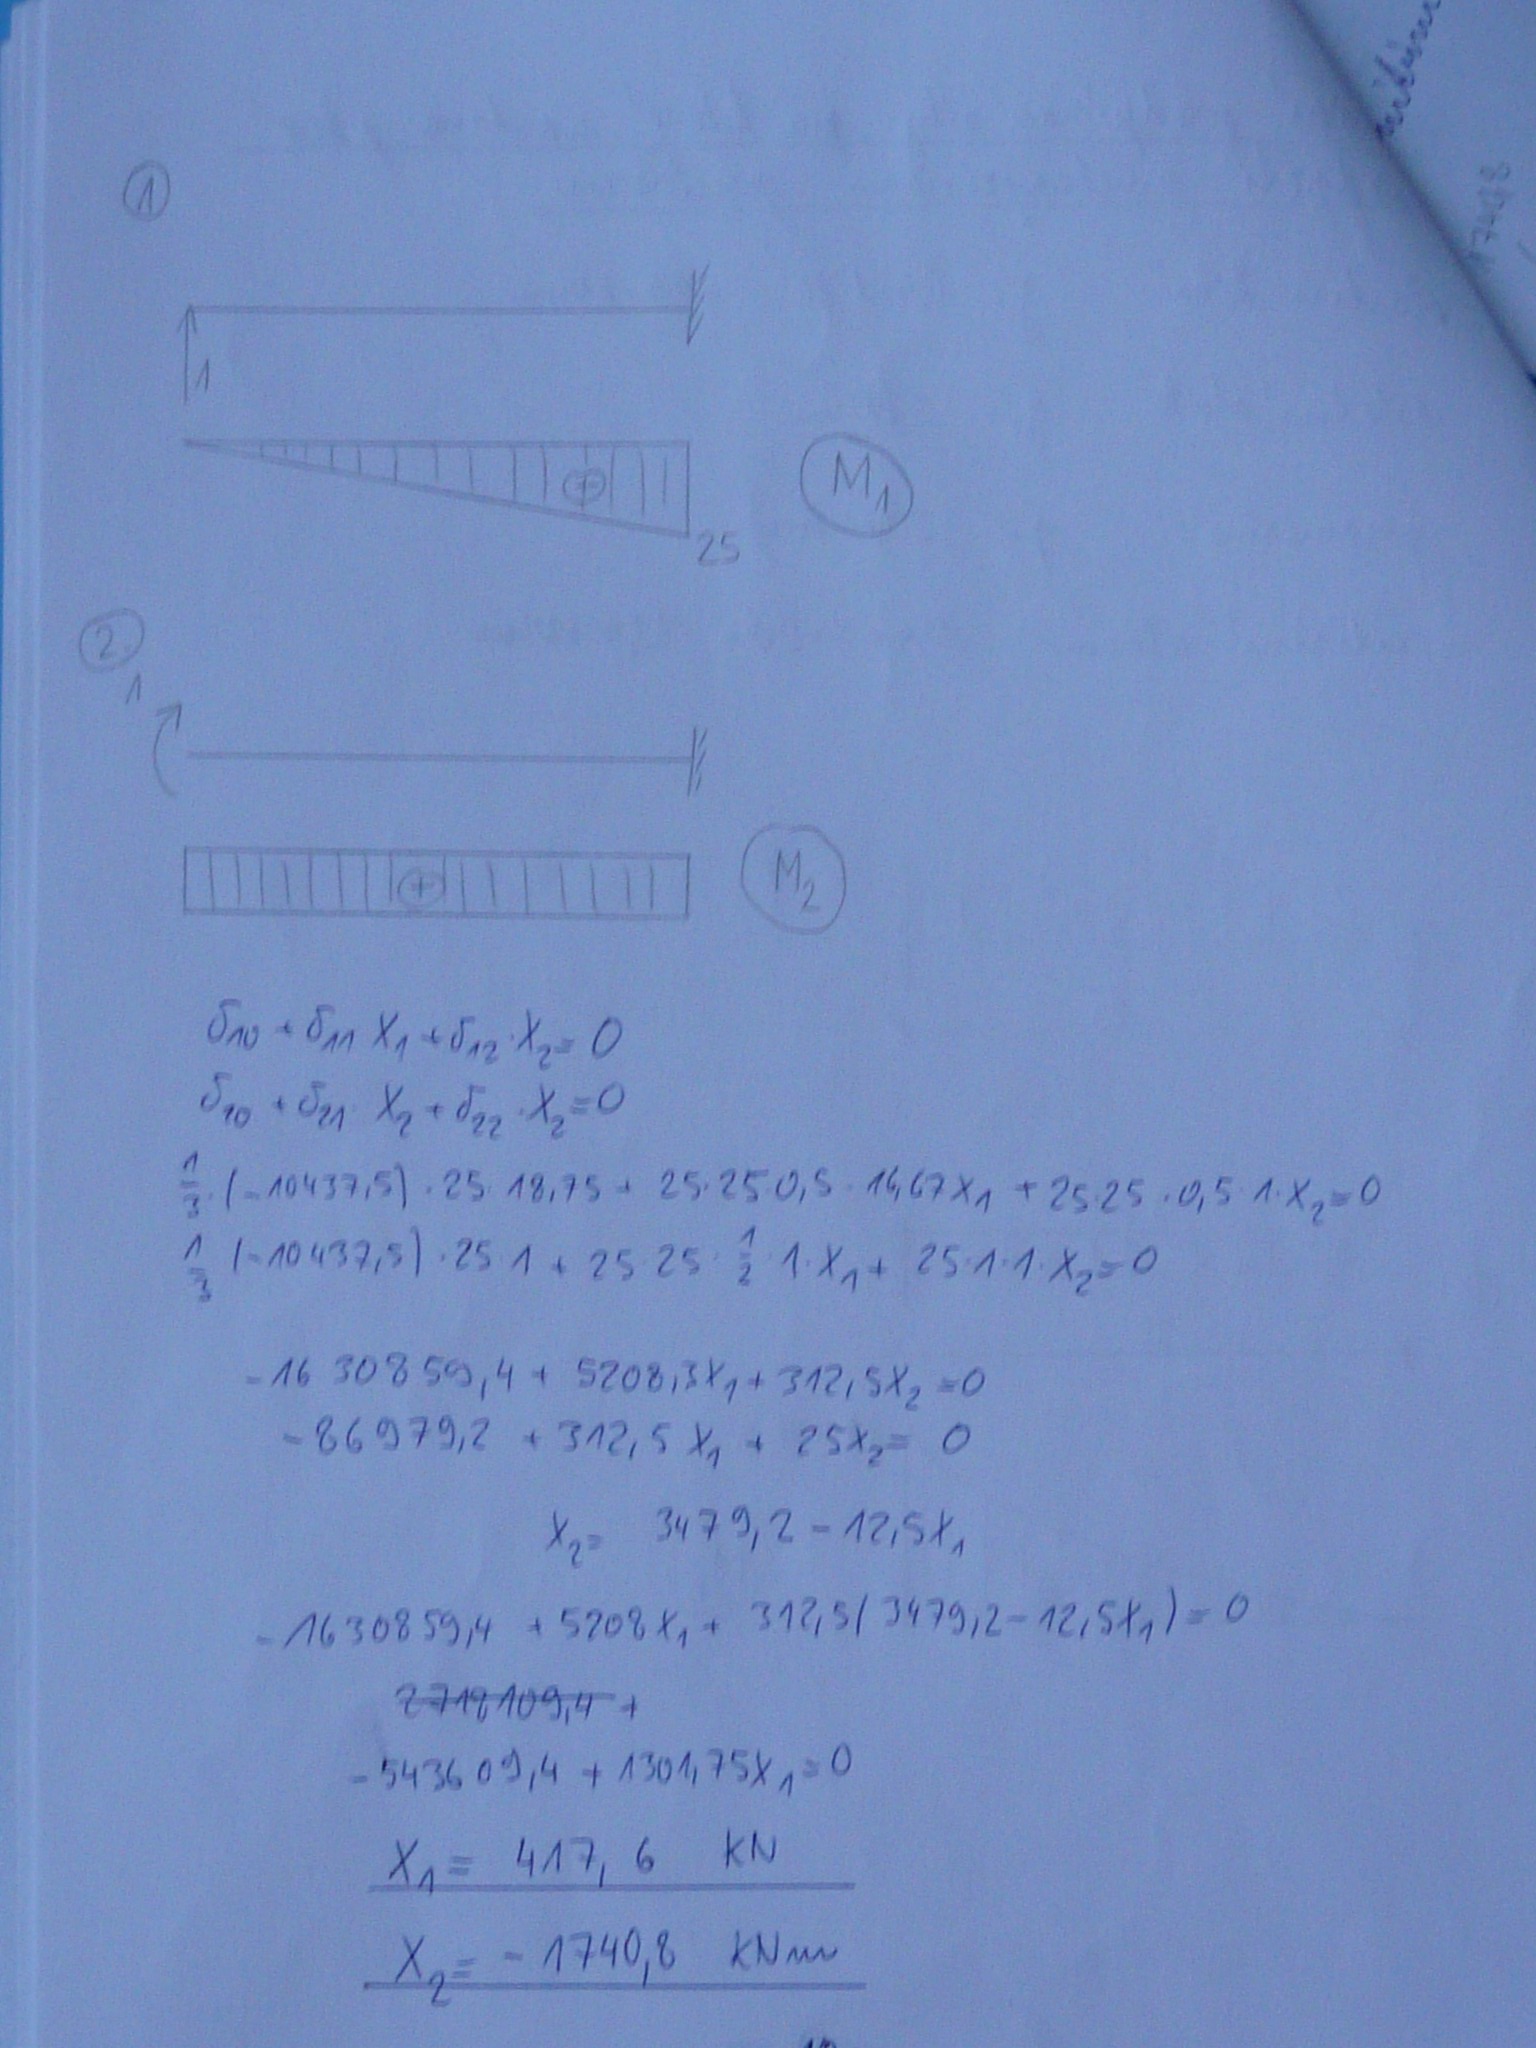 1
1
25
M₁
2
1
M₂
δ₁₀ + δ₁₁ X₁ + δ₁₂ · X₂ = 0
δ₂₀ + δ₂₁ · X₂ + δ₂₂ · X₂ = 0
1/3 · (-10437,5) · 25 · 18,75 + 25 · 25 0,5 · 16,67 X₁ + 25 · 25 · 0,5 · 1 · X₂ = 0
1/3 (-10437,5) · 25 · 1 + 25 · 25 · 1/2 · 1 · X₁ + 25 · 1 · 1 · X₂ = 0
-1630859,4 + 5208,3X₁ + 312,5X₂ = 0
-86979,2 + 312,5 X₁ + 25X₂ = 0
X₂ = 3479,2 - 12,5X₁
-1630859,4 + 5208X₁ + 312,5(3479,2 - 12,5X₁) = 0
2718109,4 +
-543609,4 + 1301,75X₁ = 0
X₁ = 417,6 kN
X₂ = -1740,8 kNm